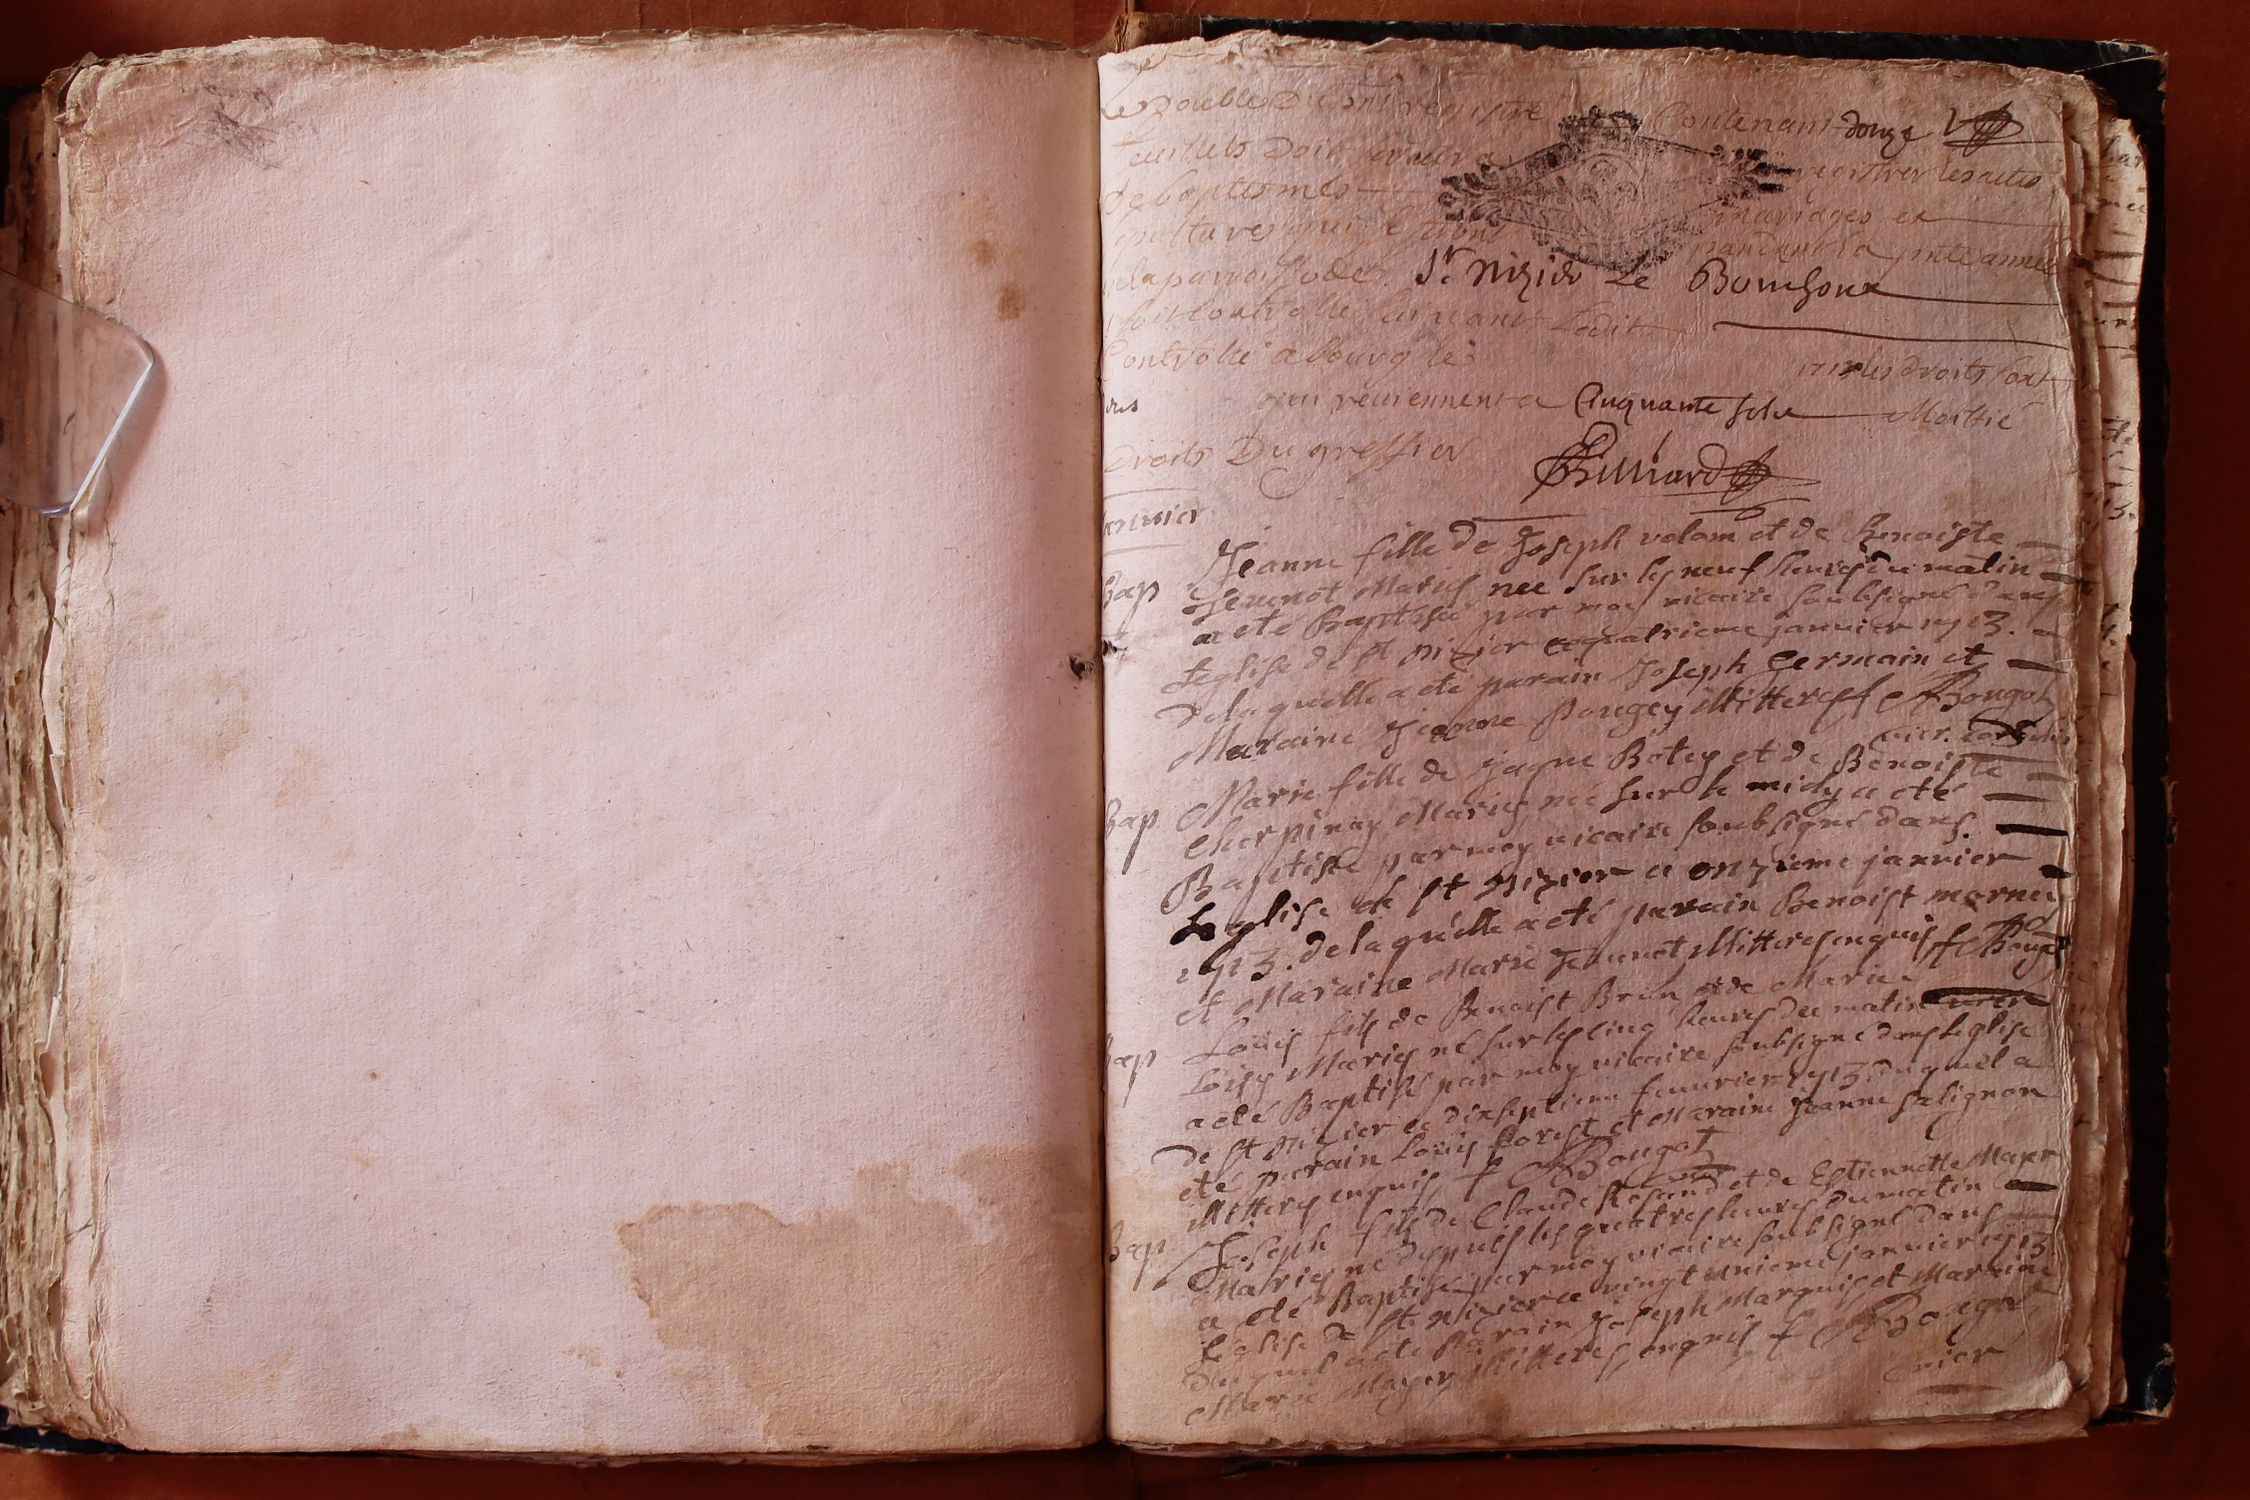 Le Double Du pnt registre Contenant douze
feuillets Doit servir a registrer les actes
de baptesmes mariages et
pultures qui se feront pandant la pnte année
de la parroisse de St. Nizier Le Bouchoux
Controllé a bourg le 1713 les droits sont
qui reviennent a Cinquante sols Moitié
Droits Du greffier
Billiard
Janvier
Bap Jeanne fille de Joseph velom et de Benoiste
Jeunot Mariés née sur les neuf heures du matin
a eté Baptisée par moy vicaire soubsigné dans
Leglise de st nizier ce quatrieme janvier 1713.
de laquelle a eté parain Joseph Germain et
Maraine Jeanne Pougey illitterés f Bougot
vicr.
Bap Marie fille de Jaque Botey et de Benoiste
Cherpinay Mariés née sur le midy a eté
Baptisée par moy vicaire soubsigné dans
Leglise de st nizier ce onzieme janvier
1713. de laquelle a eté parain Benoist
et Maraine Marie Jeunot illitterés enquis f Bougot
Bap Louis fils de Benoist Brun et de Marie
Mariés né sur les cinq heures du matin
a eté Baptisé par moy vicaire soubsigné dans Leglise
de st nizier ce dixseptieme 1713. duquel a
eté parain Louis forest et Maraine Jeanne salignon
illitterés enquis f Bougot
Bap Joseph fils de Claude et de Estiennette Mayer
Mariés né depuis les quatres heures du matin
a eté Baptisé par moy vicaire soubsigné dans
Leglise de st nizier ce vingt unieme janvier 1713
duquel a eté Parain Joseph Marquis et Maraine
Marie Mayer illitterés enquis f Bougot
vicr